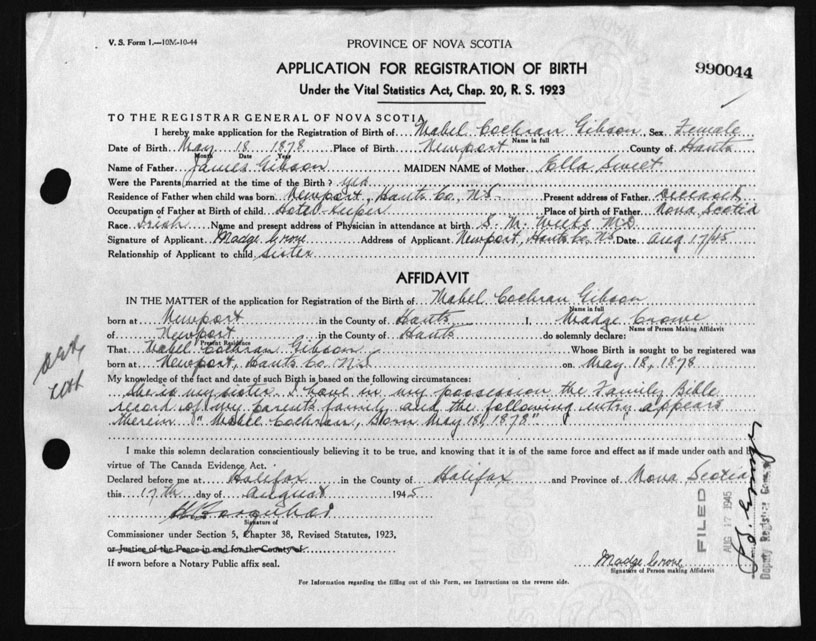 V. S. Form 1.—10M-10-44
PROVINCE OF NOVA SCOTIA
990044
APPLICATION FOR REGISTRATION OF BIRTH
Under the Vital Statistics Act, Chap. 20, R. S. 1923
TO THE REGISTRAR GENERAL OF NOVA SCOTIA
I hereby make application for the Registration of Birth of Mabel Cochran Gibson, Sex Female
Name in full
Date of Birth May 18 1878 Place of Birth Newport County of Hants
Month Date Year
Name of Father James Gibson MAIDEN NAME of Mother Ella Sweet
Were the Parents married at the time of the Birth? yes
Residence of Father when child was born Newport, Hants Co, NS. Present address of Father deceased
Occupation of Father at Birth of child Hotel Keeper Place of birth of Father Nova Scotia
Race Irish Name and present address of Physician in attendance at birth S. M. M.D.
Signature of Applicant Madge Crowe Address of Applicant Newport, Hants Co. NS Date Aug 17/45
Relationship of Applicant to child Sister
AFFIDAVIT
IN THE MATTER of the application for Registration of the Birth of Mabel Cochran Gibson
Name in full
born at Newport in the County of Hants I, Madge Crowe
Name of Person Making Affidavit
of Newport in the County of Hants do solemnly declare:
Present Residence
That Mabel Cochran Gibson Whose Birth is sought to be registered was
born at Newport, Hants Co. NS on May 18, 1878
My knowledge of the fact and date of such Birth is based on the following circumstances:
She is my sister. I have in my possession the Family Bible
record of my parents family and the following entry appears
therein "Mabel Cochran, Born May 18, 1878"
I make this solemn declaration conscientiously believing it to be true, and knowing that it is of the same force and effect as if made under oath and by
virtue of The Canada Evidence Act.
Declared before me at Halifax in the County of Halifax and Province of Nova Scotia
this 17th day of August 1945
Signature of
Commissioner under Section 5, Chapter 38, Revised Statutes, 1923,
or Justice of the Peace in and for the County of
If sworn before a Notary Public affix seal.
Madge Crowe
Signature of Person making Affidavit
For Information regarding the filling out of this Form, see Instructions on the reverse side.
FILED
AUG 17 1945
Deputy Registrar General